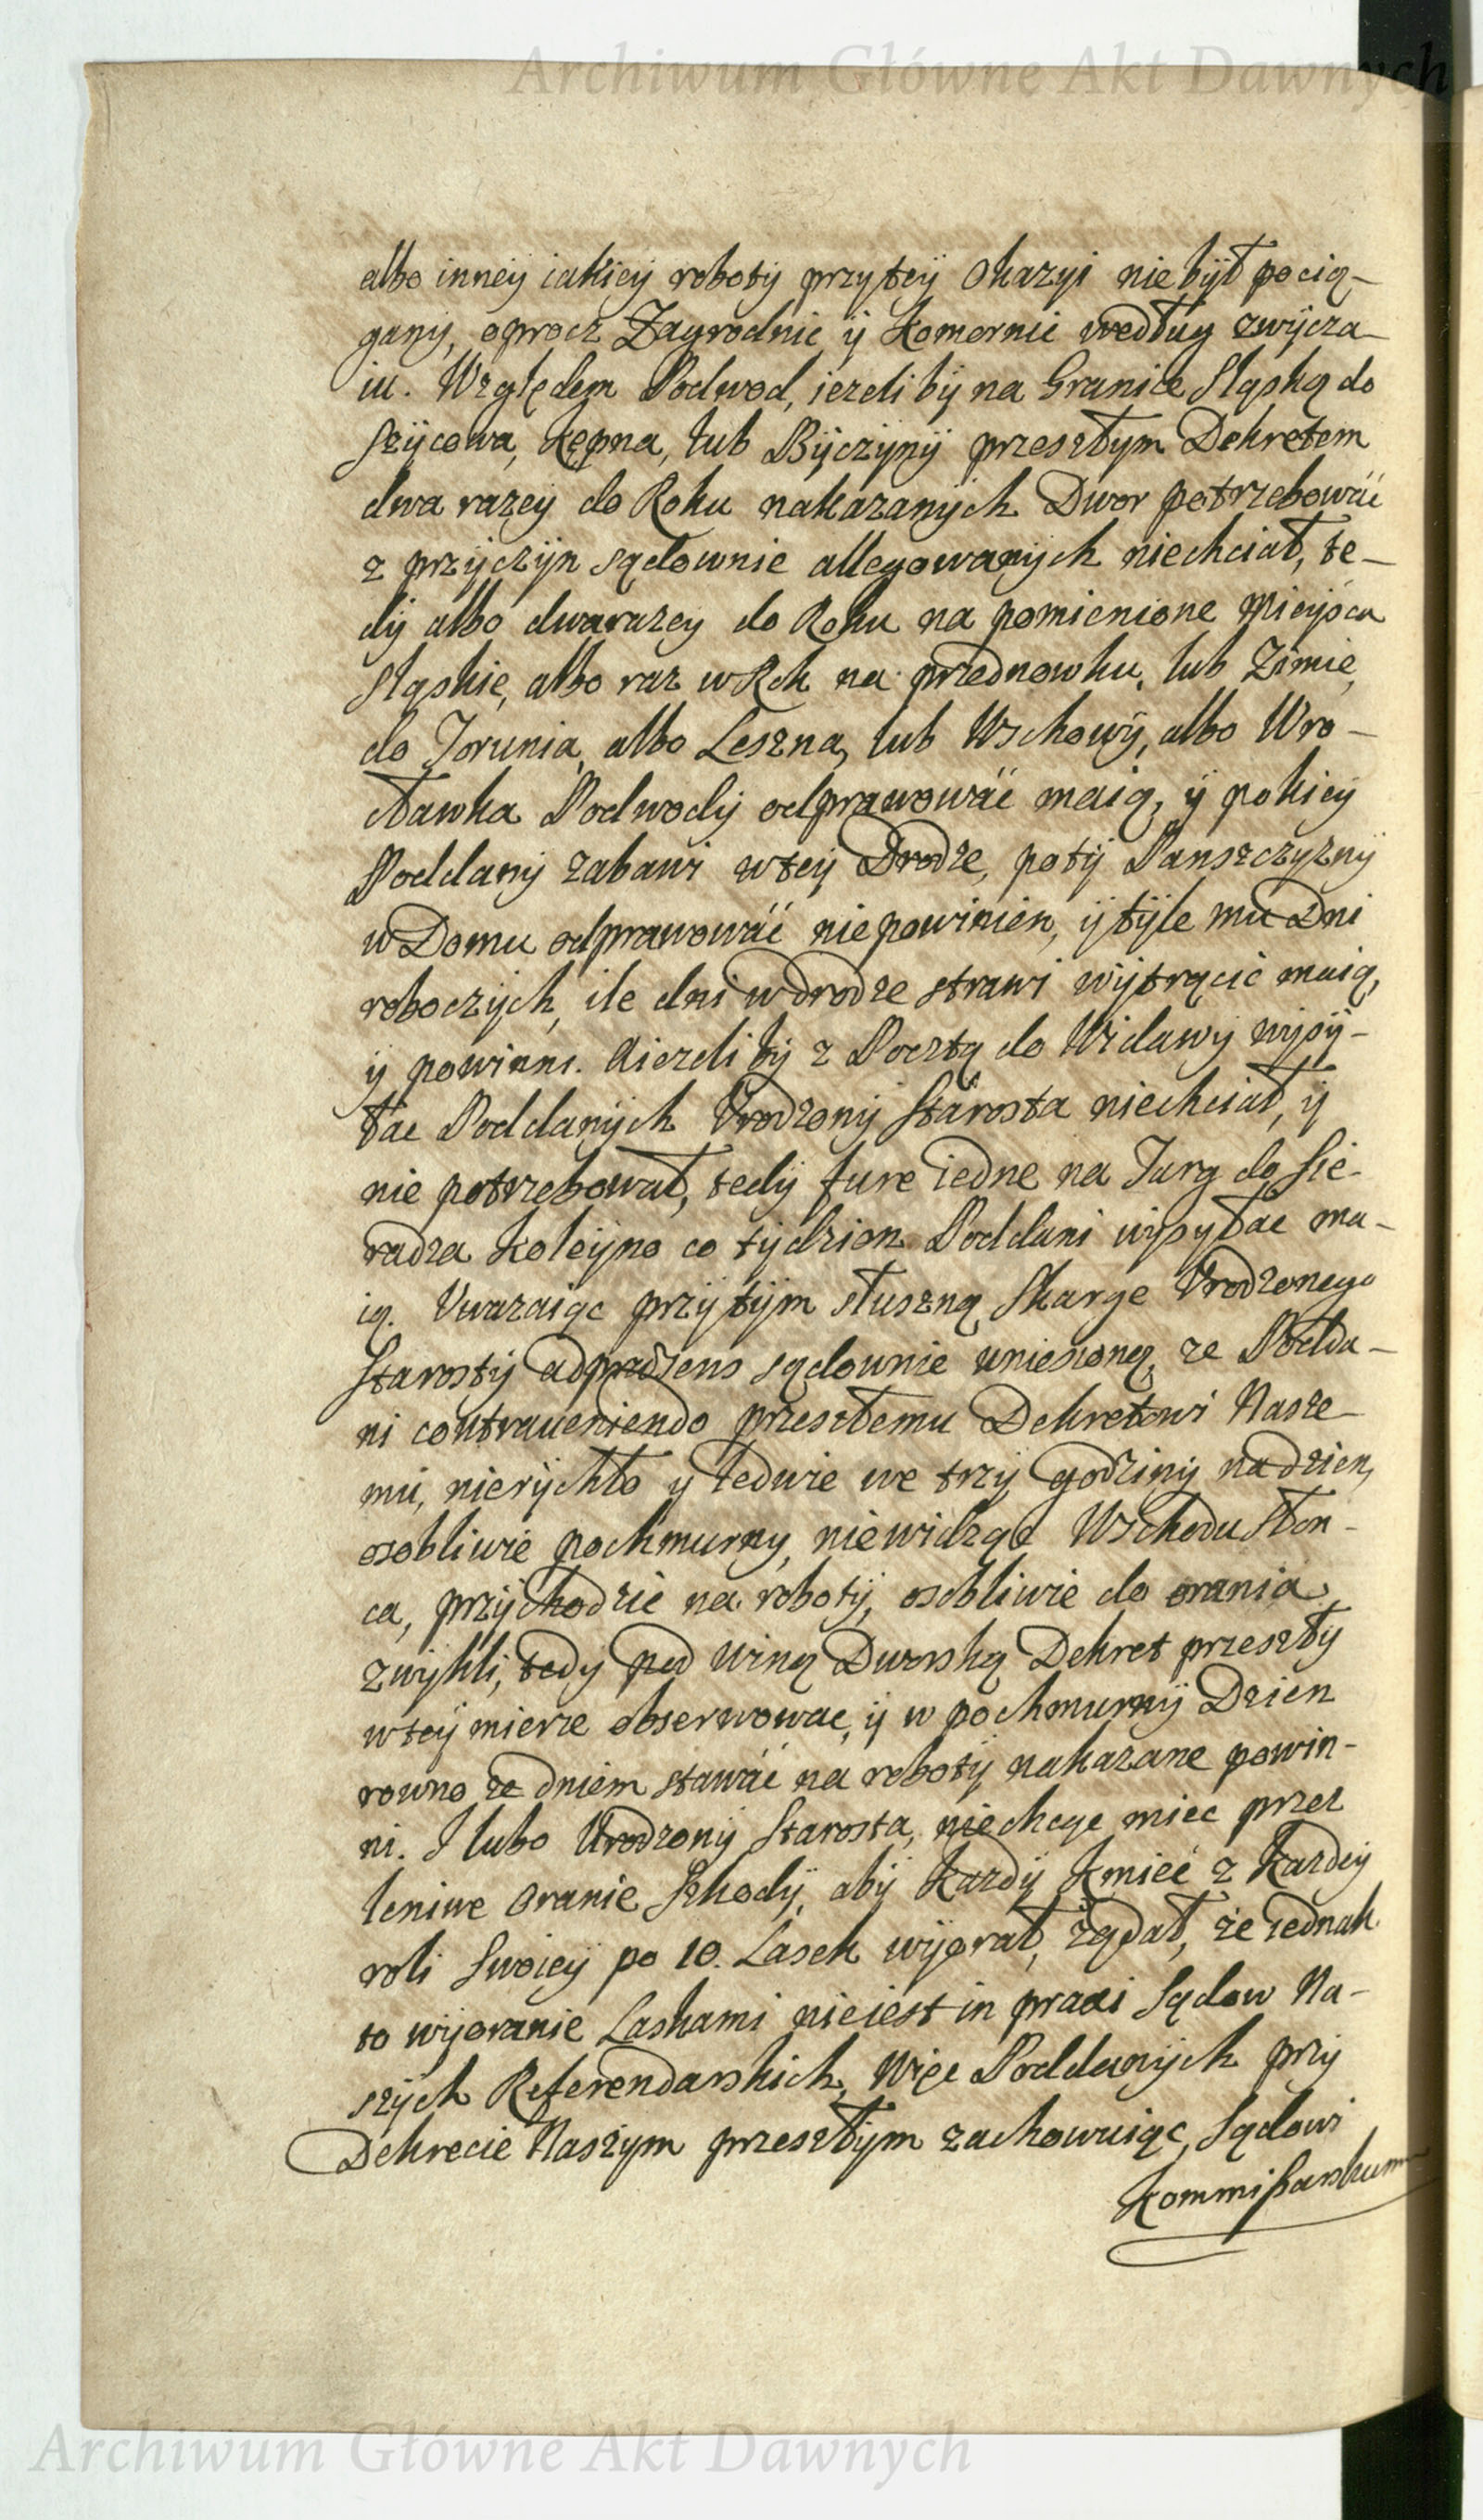 Archiwum Główne Akt Dawnych
albo inney iakiey roboty przy tey Okazyi nie był pocią-
gany, oprocz Zagrodnic ÿ Komornic według zwÿcza-
iu. Względem Podwod, ieżeli bÿ na Granice Sląską do
Szÿcowa, Kępna, lub Bÿczÿnÿ przeszłym Dekretem
dwa razeÿ do Roku nakazanÿch Dwor potrzebowáć
z przÿczÿn sądownie allegowanÿch niechciał, te-
dÿ albo dwa razeÿ do Roku na pomienione Mieÿsca
Sląskie, albo raz w Rok na przednowku, lub Zimie,
do Torunia, albo Leszna, lub Wschowÿ, albo Wro-
cławka Podwodÿ odprawowáć maią, ÿ pokieÿ
Poddanÿ zabawi w teÿ Drodze, potÿ Panszczyznÿ
w Domu odprawowáć nie powinien, ÿ tÿle mu Dni
roboczÿch, ile dni w drodze strawi wÿtrącić maią,
ÿ powinni. A ieżeli bÿ z Pocztą do Widawÿ wysÿ-
łac Poddanÿch Vrodzonÿ Starosta niechciał, ÿ
nie potrzebował, tedÿ fure iedne na Targ do Sie-
radza Koleÿno co tÿdzien Poddani wysyłac ma-
ią. Vwazaiąc przÿ tÿm słuszną Skarge Vrodzonego
Starostÿ ad praesens sądownie uniesioną, ze Podda-
ni contraueniendo przeszłemu Dekretowi Nasze-
mu, nierÿchło y ledwie we trzÿ godzinÿ na dzien,
osobliwie pochmurny, niewidząc Wschodu Słon-
ca, przÿchodzić na robotÿ, osobliwie do orania
zwÿkli, tedy pod winą Dworską Dekret przeszłÿ
w teÿ mierze obserwowac, ÿ w pochmurnÿ Dzien
rowno ze dniem stawáć na robotÿ nakazane powin-
ni. I lubo Urodzonÿ Starosta, niechcąc miec przez
leniwe oranie Szkodÿ, abÿ Kazdÿ Kmieć z Kazdeÿ
roli Swoieÿ po 10. Lasek wÿorał, żądał, że iednak
to wÿoranie Laskami nieiest in praxi Sądow Na-
szÿch Referendarskich, Więc Poddanÿch przÿ
Dekrecie Naszym przeszłÿm zachowuiąc, Sądowi
Kommissarskiemu
Archiwum Główne Akt Dawnych